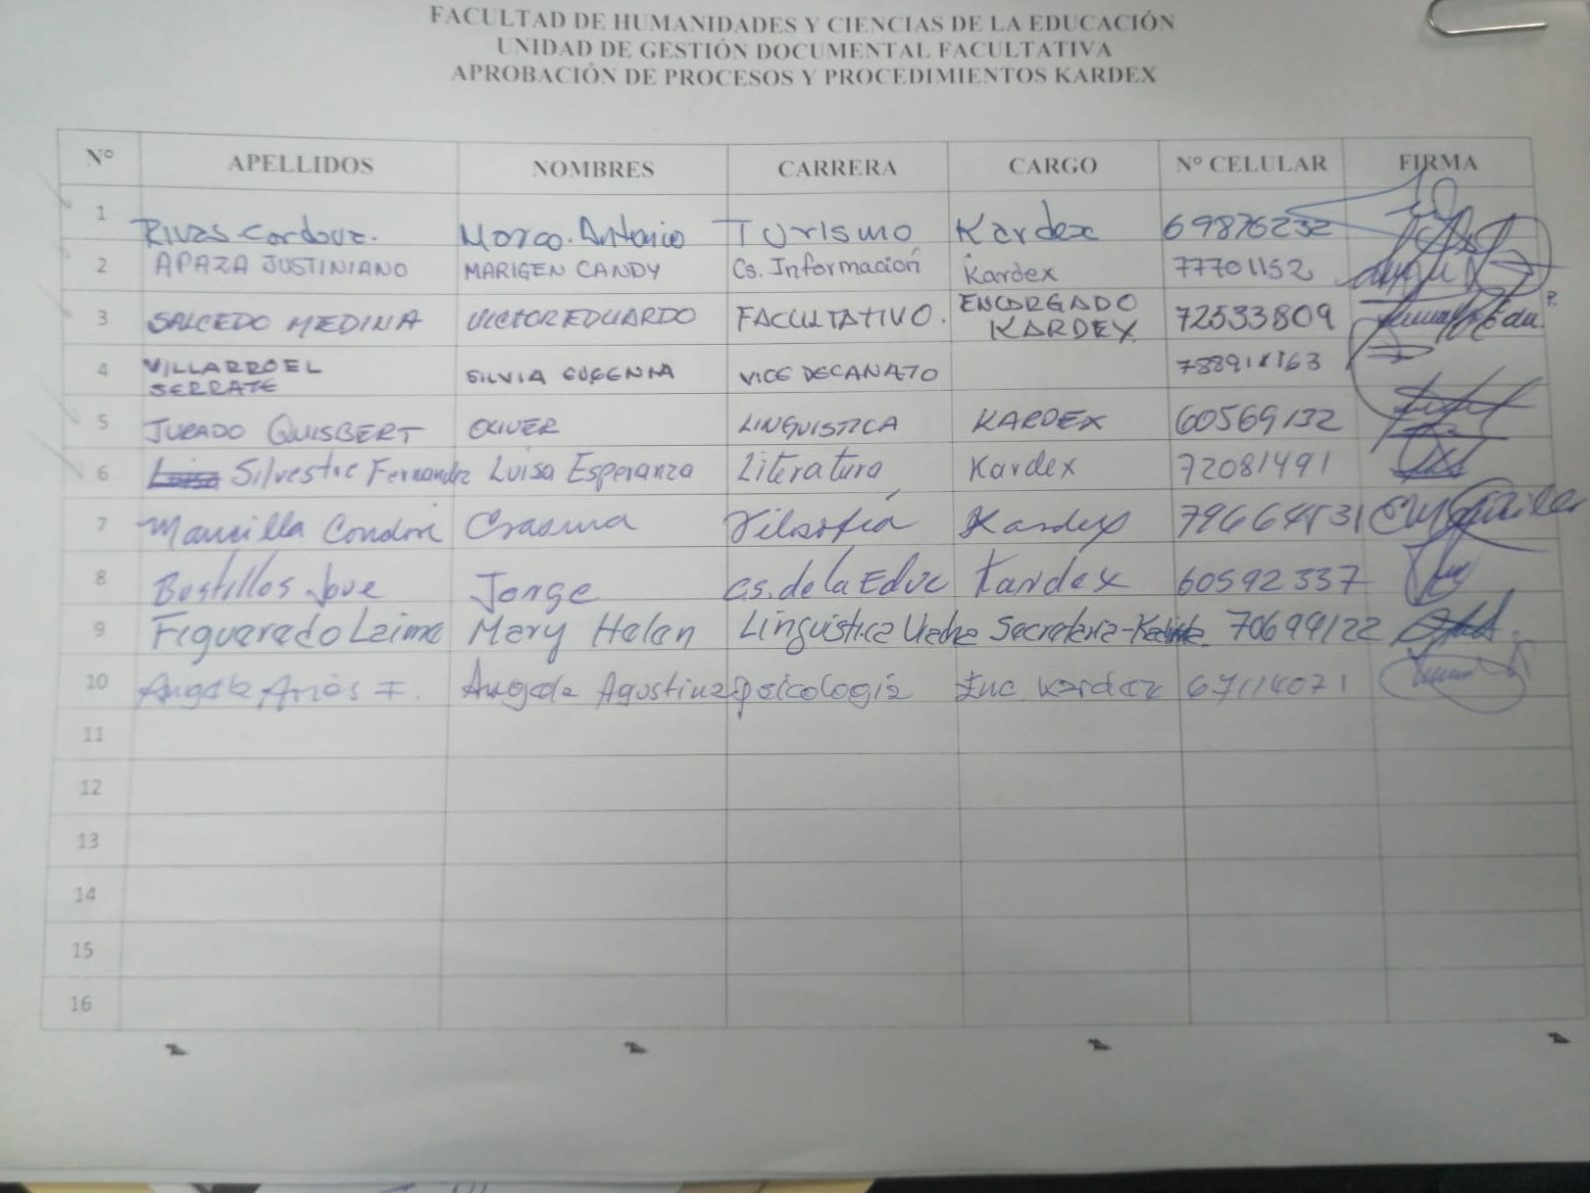 FACULTAD DE HUMANIDADES Y CIENCIAS DE LA EDUCACIÓN
UNIDAD DE GESTIÓN DOCUMENTAL FACULTATIVA
APROBACIÓN DE PROCESOS Y PROCEDIMIENTOS KARDEX
N° APELLIDOS NOMBRES CARRERA CARGO N° CELULAR FIRMA
1 Rivas Cordova. Marco Antonio Turismo Kardex 69876232
2 APAZA JUSTINIANO MARIGEN CANDY Cs. Información Kardex 77701152
3 SALCEDO MEDINA VICTOR EDUARDO FACULTATIVO. ENCARGADO KARDEX 72533809
4 VILLARROEL SERRATE SILVIA EUGENIA VICE DECANATO
5 JURADO QUISBERT OLIVER LINGUISTICA KARDEX 60569132
6 Silvestre Fernandz Luisa Esperanza Literatura Kardex 72081491
7 Mancilla Condori Filosofía Kardex
8 Bustillos Jove Jorge cs. de la Educ Kardex 60592337
9 Figueredo Laime Mery Helen Linguistica Secretaria- 70699122
10 Arias F. Angela Agustina psicología Enc. Kardex 67114071
11
12
13
14
15
16